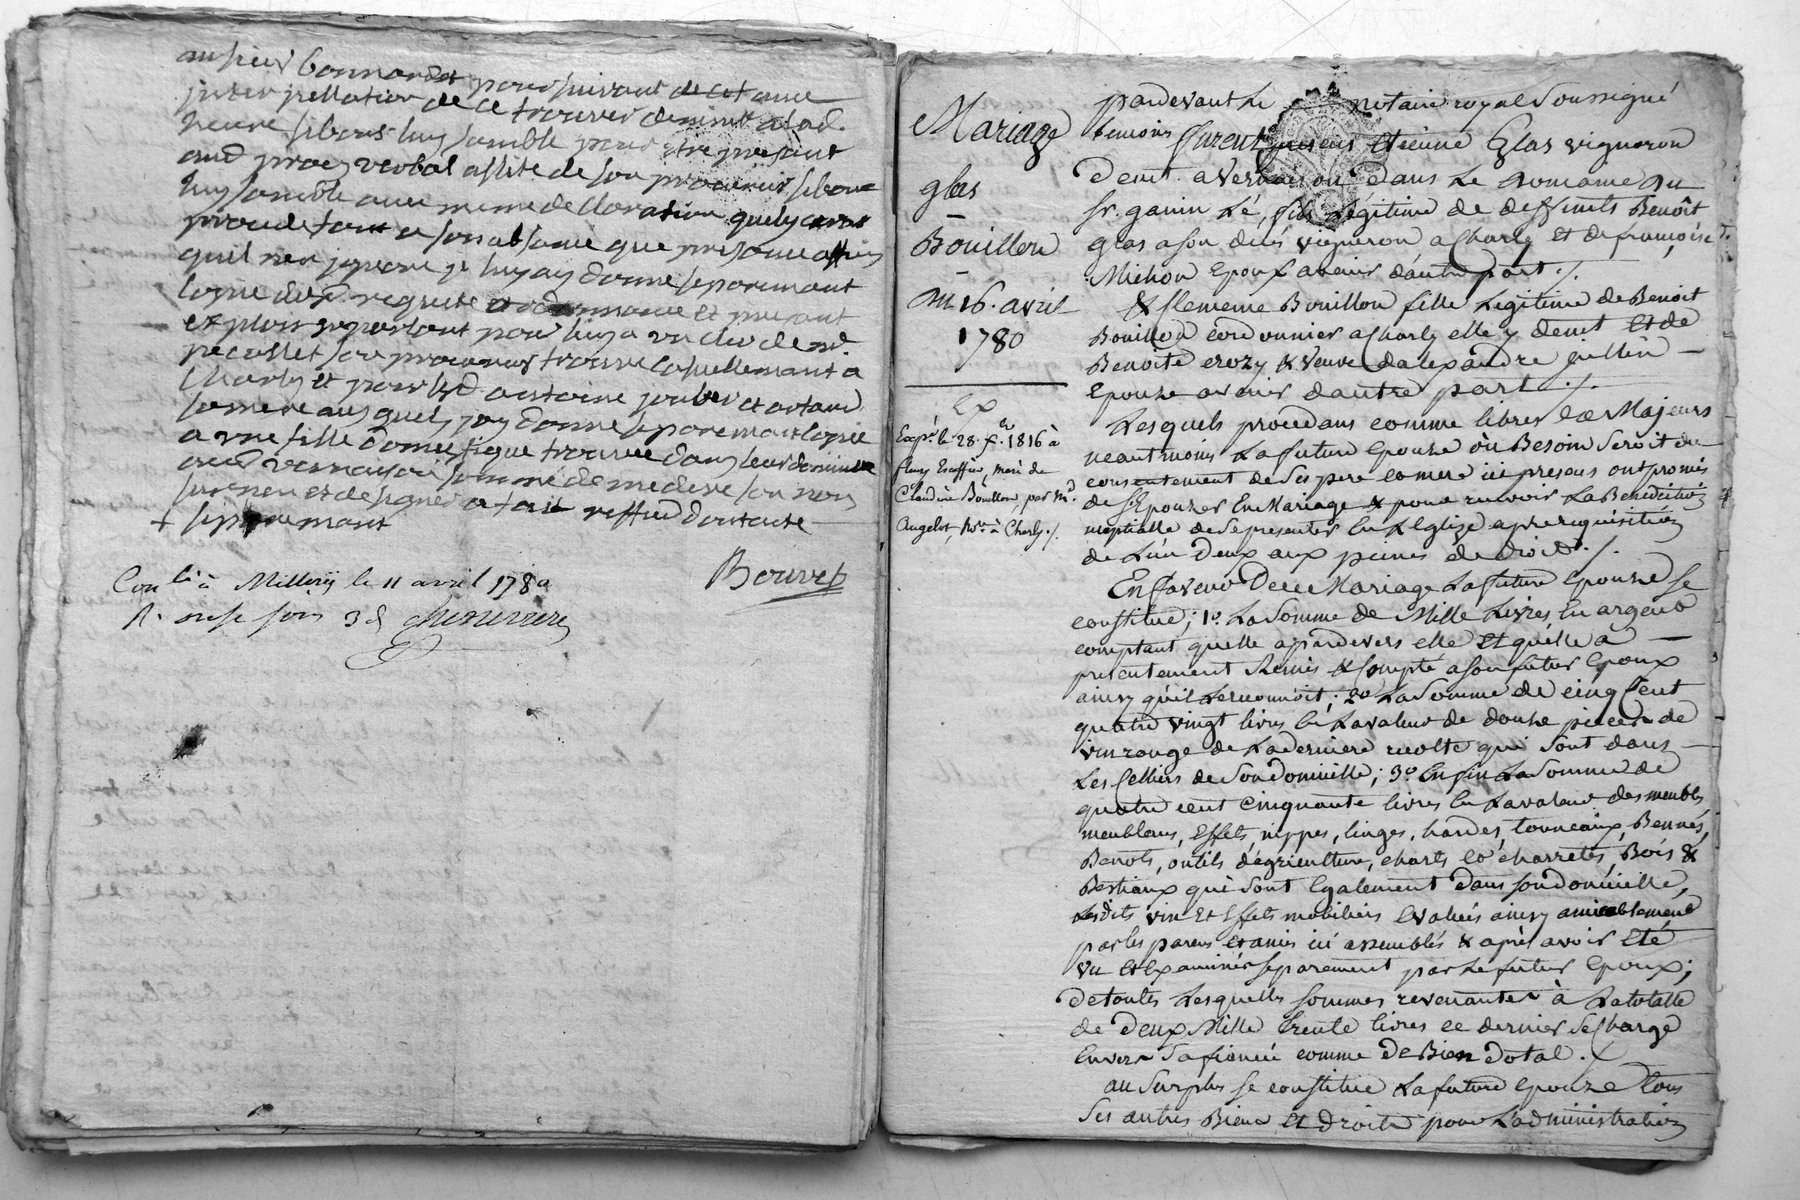 au sieur bonnardet poursuivant de cet une
interpellation de ce trouver demint a lad.
heure si bons luy semble pour etre present
aud proces verbal assité de son procureur si bon
luy semble avec meme declaration quely sera
procedé tant en son absance que presance affin
quil n'en ignore je luy ay donné separemant
copie desd. requete et ordonnance et presant
exploit en parlant pour luy a un clerc de md.
son procureur trouvé casuellemant a
Charly et pour led antoine joubert et
sa mere ausquels jay donné separemant copie
a une fille domestique trouvée dans leur domicille
aud vernaison sommé de me dire son nom
surnom et de signer a tout reffusé dont acte
+ separemant
Bouvet
Con lé à Millery le 11 avril 1780
R. onse sous 3 d
Mariage
glas
—
Bouillon
—
Du 16. avril
1780
Ex
Expé. le 28. Xbre 1816 à
fleury Escoffier, mari de
Claudine Bouillon, par Md.
Angelot, Nre. à Charly ./.
pardevant Le notaire royal Soussigné
temoins furent presens Etienne Glas vigneron
demt. a Vernaison dans Le domaine du
sr. ganin Lé, fils Légitime de deffunts Benoît
glas a son décés vigneron a Charly Et de françoise
Michon Epoux avenir d'autre part ./.
& Clemence Bouillon fille Légitime de Benoit
Bouillon cordonnier a Charly elle y demt Et de
Benoite crozy & Veuve d'alexandre jullien —
Epouse avenir d'autre part ./.
Lesquels procedans comme libres & Majeurs
neantmoins La future Epouse où Besoin Seroit du
consentement de Ses pere & mere ici presens ont promis
de s'Epouser En Mariage & pour recevoir La Benediction
nuptialle de Se presenter En L'Eglize a pre. requisition
de L'un deux aux peines de droit ./.
En faveur De ce Mariage La future Epouse se
constitue; 1o. La Somme de Mille Livres En argent
comptant quelle a pardevers elle Et quelle a —
presentement Remis & Compté a son futur Epoux
ainsy quil Le reconnoit; 2o La Somme de cinq Cent
quatre vingt livres En La valeur de douze pieces de
vin rouge de La derniere recolte qui Sont dans —
Les Celliers de Son Domicille; 3o. Enfin La Somme de
quatre cent Cinquante livres En La valeur des meubles
meublans, Effets, nippes, linges, hardes, tonneaux, Bennes,
Benots, outils d'agriculture, charts & charretes, Bois &
Bestiaux qui Sont Egalement dans Son domicille,
Lesdits vin Et Effets mobiliers Evalués ainsy amiablement
par les parens et amis ici assemblés & après avoir Eté
Vu Et Examinés separement par Le futur Epoux;
de toutes Lesquelles sommes revenantes à La totalle
de Deux Mille trente livres ce dernier Se Charge
Envers Sa fiancée comme de Bien dotal ./.
au Surplus se constitue La future Epouze tous
Ses autres Biens Et droits pour L'administration